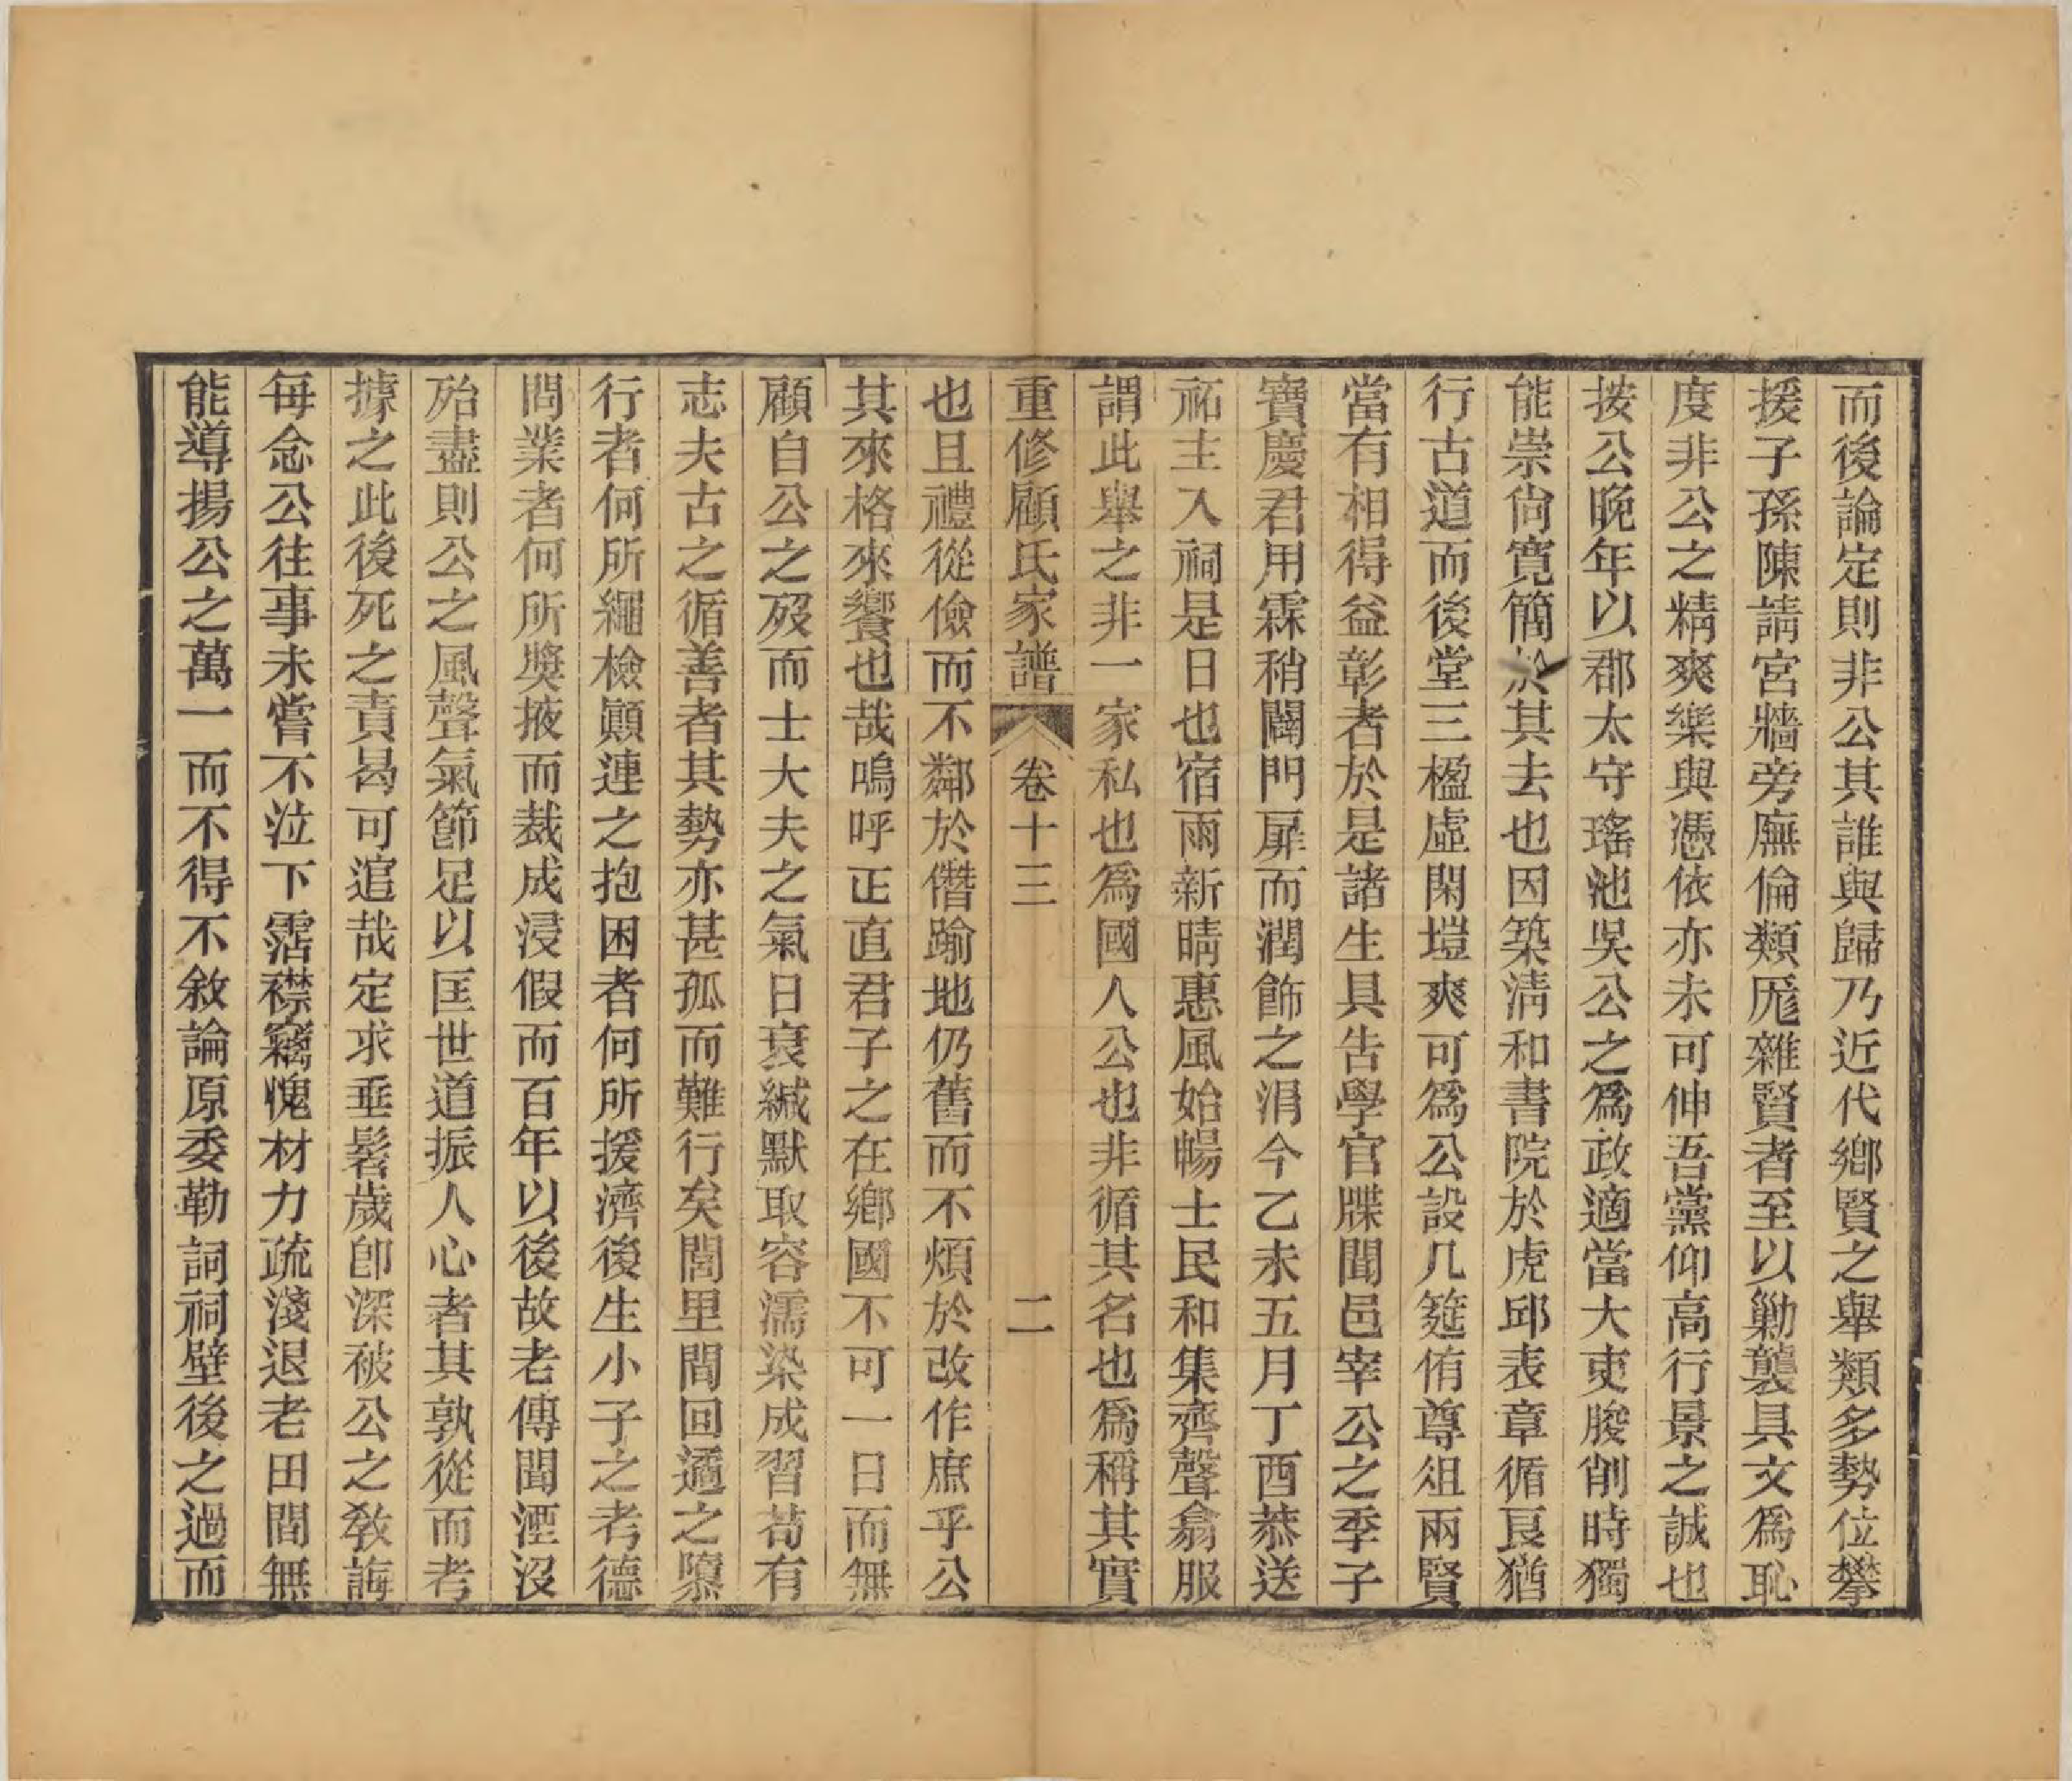 而後論定則非公其誰與歸乃近代鄕賢之舉類多勢位攀
援子孫陳請宮牆旁廡倫類厖雜賢者至以勦襲具文爲恥
度非公之精爽樂與憑依亦未可伸吾黨仰高行景之誠也
按公晚年以郡太守瑤池吳公之爲政適當大吏朘削時獨
能崇尙寬簡於其去也因築淸和書院於虎邱表章循良猶
行古道而後堂三楹虛閑塏爽可爲公設几筵侑尊俎兩賢
當有相得益彰者於是諸生具吿學官牒聞邑宰公之季子
寶慶君用霖稍闢門扉而潤飾之涓今乙未五月丁酉恭送
祏主入祠是日也宿雨新晴惠風始暢士民和集齊聲翕服
謂此舉之非一家私也爲國人公也非循其名也爲稱其實
重修顧氏家譜 卷十三 二
也且禮從儉而不鄰於僭踰地仍舊而不煩於改作庶乎公
其來格來饗也哉嗚呼正直君子之在鄕國不可一日而無
顧自公之歿而士大夫之氣日衰緘默取容濡染成習苟有
志夫古之循善者其勢亦甚孤而難行矣閭里間回遹之隳
行者何所繩檢顚連之抱困者何所援濟後生小子之考德
問業者何所獎掖而裁成浸假而百年以後故老傳聞湮沒
殆盡則公之風聲氣節足以匡世道振人心者其孰從而考
據之此後死之責曷可逭哉定求垂髫歲卽深被公之敎誨
每念公往事未嘗不泣下霑襟竊愧材力疏淺退老田間無
能導揚公之萬一而不得不敘論原委勒詞祠壁後之過而